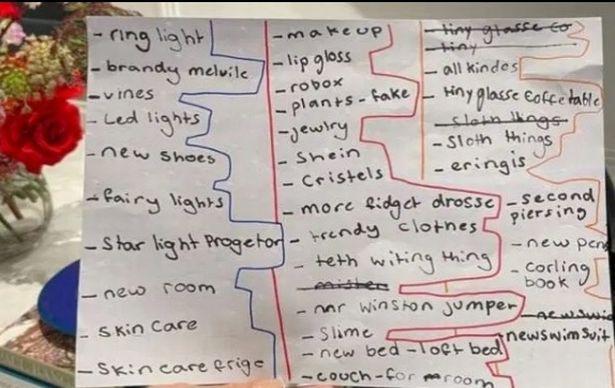 - ring light
- brandy melvile
- vines
- Led lights
- new shoes
- fairy lights
- Star light Progetor
- new room
- skin care
- Skin care frige
- makeup
- lip gloss
- robox
- plants - fake
- jewlry
- shein
- Cristels
- more fidget drosse
- trendy clothes
- teth witing thing
mister
- mr winston jumper
- slime
- new bed - loft bed
- couch - for room
- tiny glasse co
- tiny
- all kindes
- tiny glasse coffe table
- Sloth things
- eringis
- second
piersing
- new pen
- corling
book
- newswi
newswimsuit